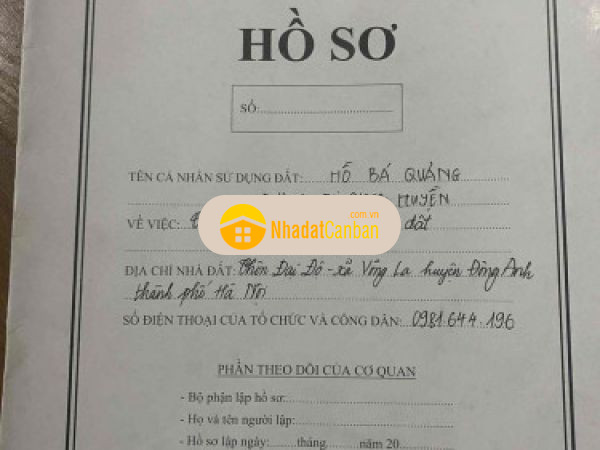 HỒ SƠ
SỐ:
TÊN CÁ NHÂN SỬ DỤNG ĐẤT: HỒ BÁ QUẢNG
HUYỀN
VỀ VIỆC: đất
NhadatCanban
.com.vn
ĐỊA CHỈ NHÀ ĐẤT: Thôn Đại Độ - xã Võng La huyện Đông Anh
thành phố Hà Nội
SỐ ĐIỆN THOẠI CỦA TỔ CHỨC VÀ CÔNG DÂN: 0981.644.196
PHẦN THEO DÕI CỦA CƠ QUAN
- Bộ phận lập hồ sơ:
- Họ và tên người lập:
- Hồ sơ lập ngày:........tháng........năm 20